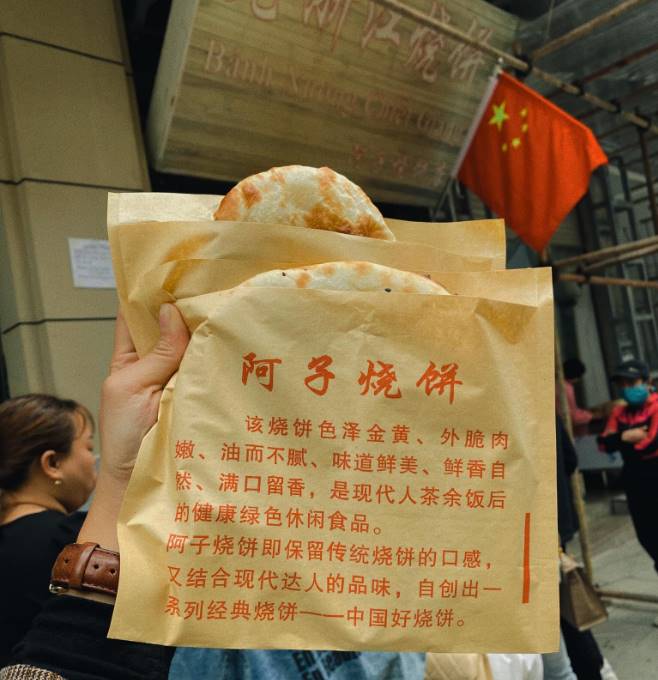 浙江烧饼
Bánh Nướng Chiết Giang
阿子烧饼
该烧饼色泽金黄、外脆肉
嫩、油而不腻、味道鲜美、鲜香自
然、满口留香，是现代人茶余饭后
的健康绿色休闲食品。
阿子烧饼即保留传统烧饼的口感，
又结合现代达人的品味，自创出一
系列经典烧饼——中国好烧饼。